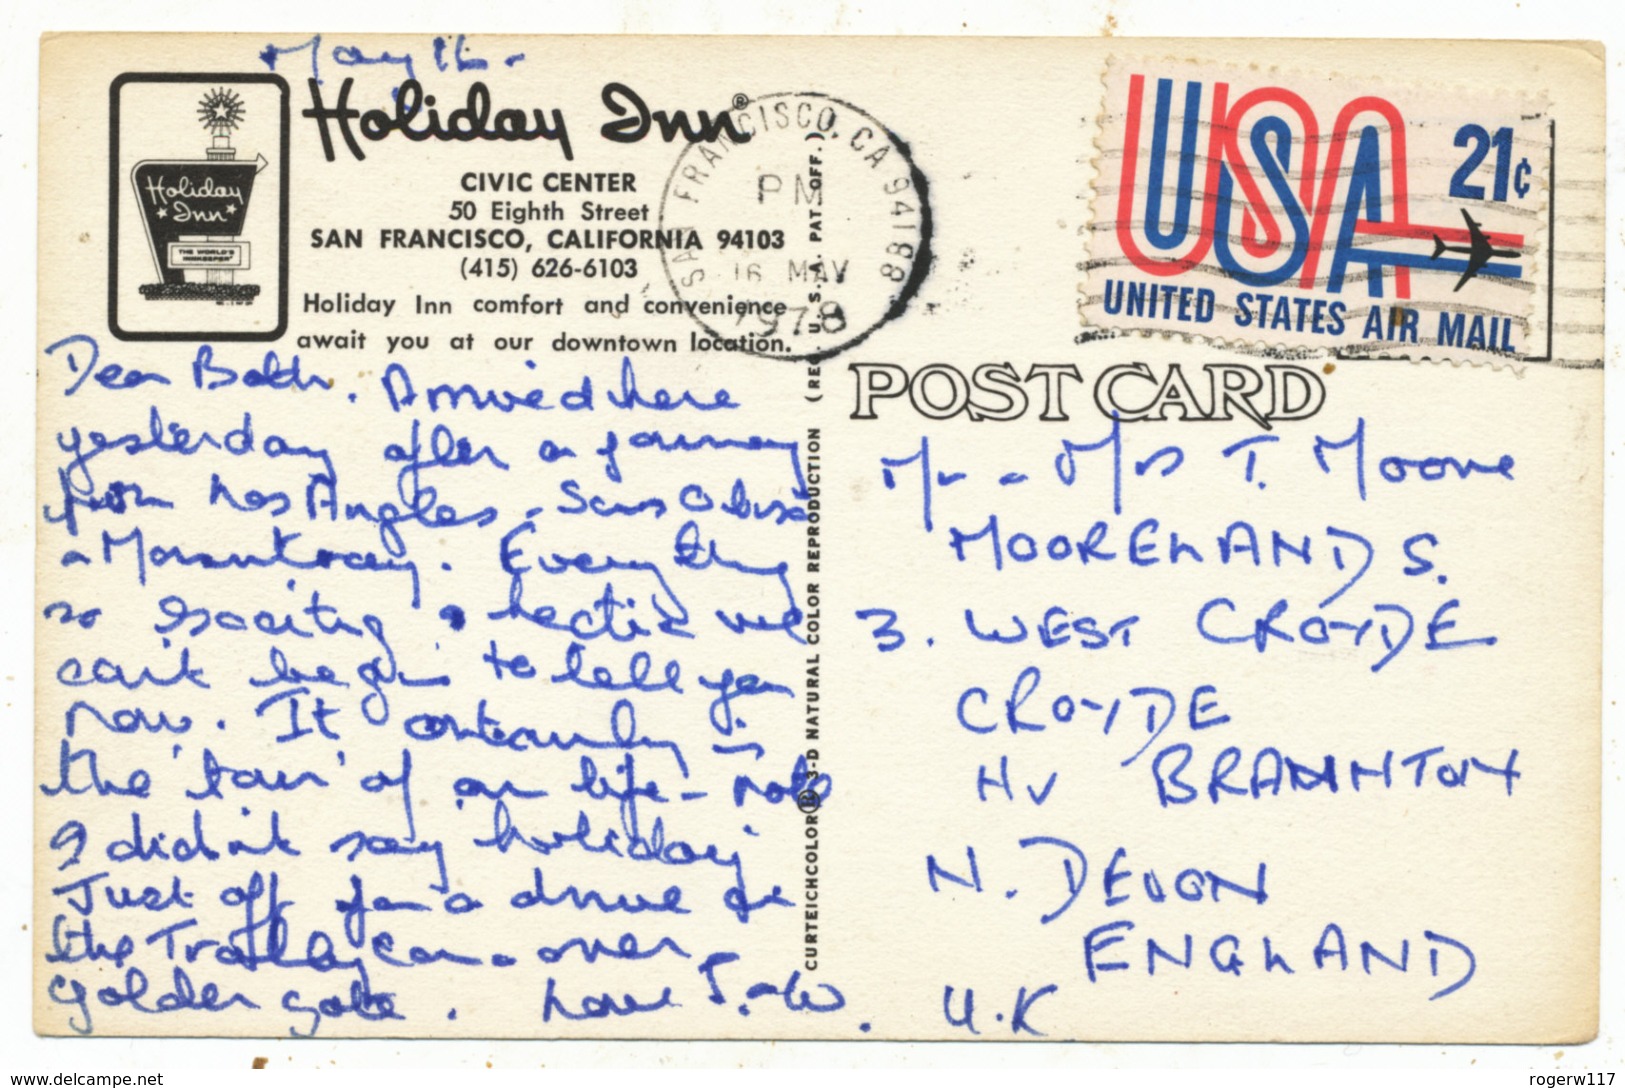 May 16 -
Holiday Inn®
Holiday
Inn
THE WORLD'S
INNKEEPER
CIVIC CENTER
50 Eighth Street
SAN FRANCISCO, CALIFORNIA 94103
(415) 626-6103
Holiday Inn comfort and convenience
await you at our downtown location.
Dear Both. Arrived here
yesterday after a journey
from Los Angles.
Everything
so exciting hectic we
can't begin to tell you
now. It certainly is
the 'tour' of our life - note
I didn't say holiday
Just off for a drive in
the Trolley car over
golden gate. Love
CURTEICHCOLOR® 3-D NATURAL COLOR REPRODUCTION (REG. U.S.A. PAT. OFF.)
SAN FRANCISCO, CA 94188
PM
16 MAY
1978
USA
21¢
UNITED STATES AIR MAIL
POST CARD
Mr - Mrs T. Moore
MOORELANDS.
3. WEST CROYDE
CROYDE
Nr BRAUNTON
N. DEVON
ENGLAND
U.K
www.delcampe.net
rogerw117